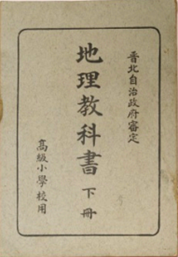 晋北自治政府審定
地理教科書 下冊
高級小學校用